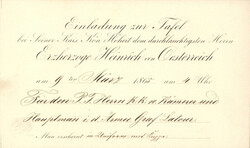 Einladung zur Tafel
bei Seiner Kais. Kön. Hoheit dem durchlauchtigsten Herrn
Erzherzoge Heinrich von Oesterreich
am 9 ten März 1865 um 4 Uhr
Für den P. T. Herrn K. K. Kämmerer und
Hauptmann i. d. Armee Graf
Man erscheint in Uniform und